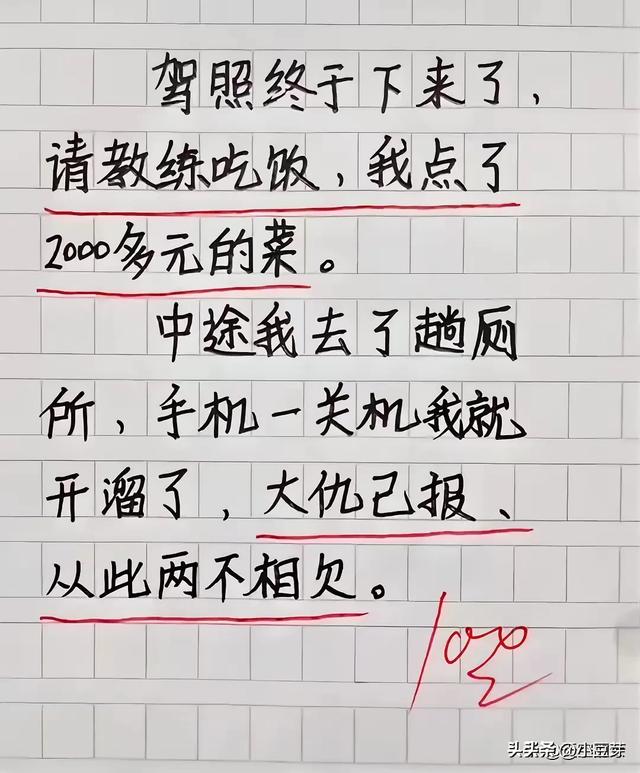 驾照终于下来了，
请教练吃饭，我点了
2000多元的菜。
中途我去了趟厕
所，手机一关机我就
开溜了，大仇已报、
从此两不相欠。
100
头条 @小豆芽